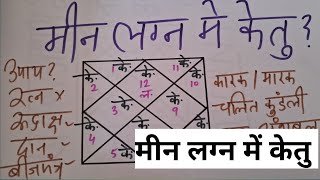 मीन लग्न मे केतु ?
उपाय ?
रत्न x
रुद्राक्ष
दान
बीजमंत्र
के. के. के. 11 के.
1
2 12 10
ल.
के. 3 के. के. 9
के.
4
5 के.
कारक / मारक
चलित कुंडली
मीन लग्न में केतु